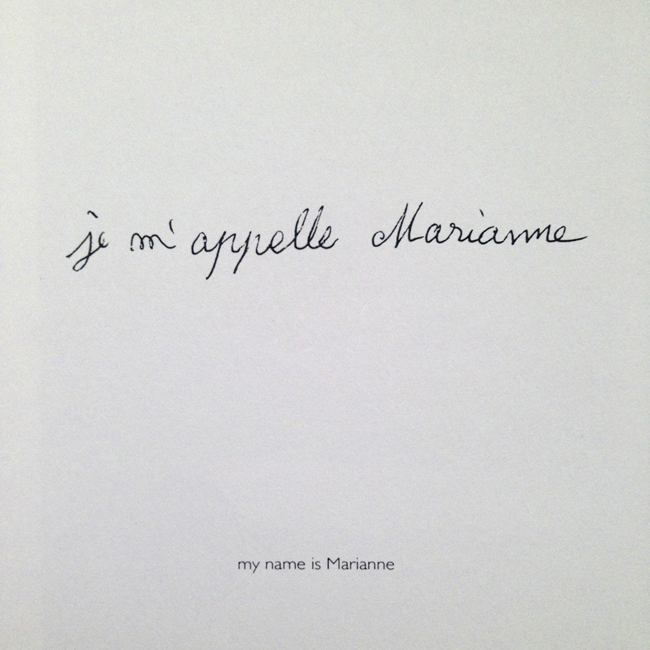 je m'appelle Marianne
my name is Marianne